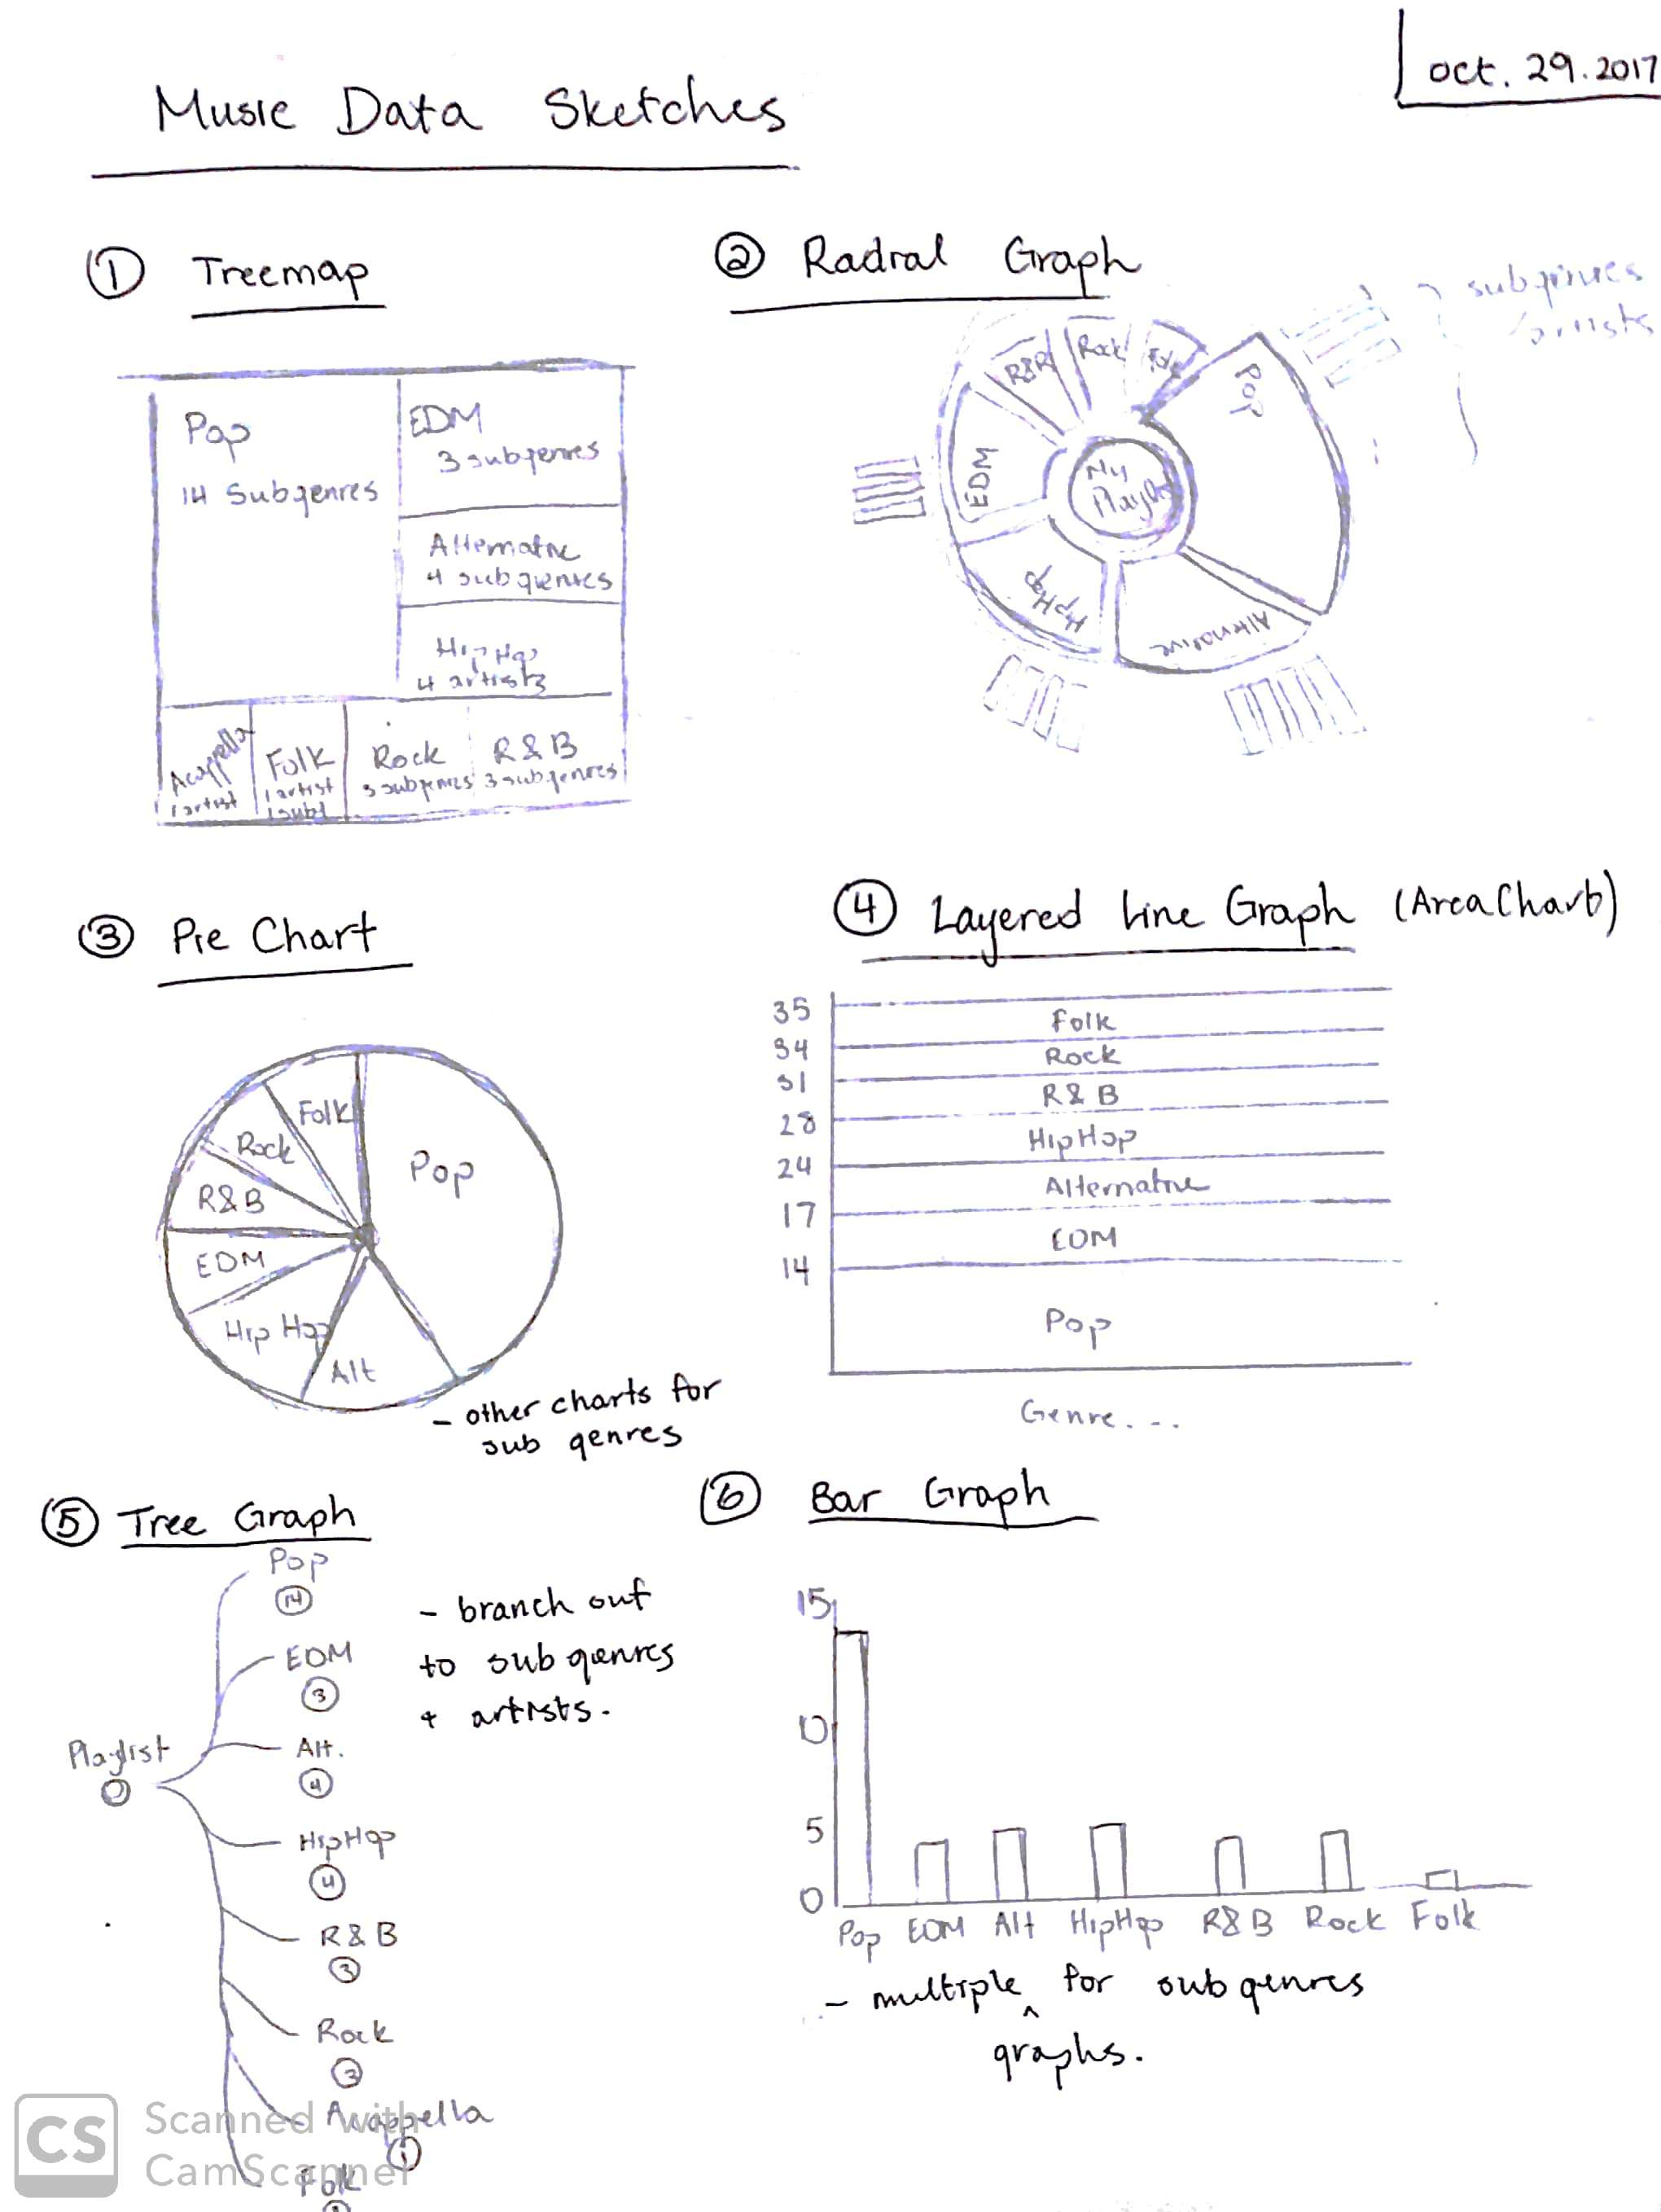 oct. 29. 2017
Music Data Sketches
① Treemap
Pop
14 Subgenres
EDM
3 subgenres
Alternative
4 subgenres
HipHop
4 artists
Acappella
1 artist
Folk
1 artist
1 sub
Rock
3 subgenres
R&B
3 subgenres
② Radial Graph
subgenres
/artists
R&B
Rock
Folk
Pop
EDM
My
HipHop
Alternative
③ Pie Chart
Folk
Rock
Pop
R&B
EDM
Hip Hop
Alt
- other charts for
sub genres
④ Layered Line Graph (Area Chart)
35
Folk
34
Rock
31
R&B
28
HipHop
24
Alternative
17
EDM
14
Pop
Genre...
⑤ Tree Graph
Pop
14
EDM
3
Playlist
Alt.
4
HipHop
4
R&B
3
Rock
3
Acappella
1
Folk
- branch out
to sub genres
+ artists.
⑥ Bar Graph
15
10
5
0
Pop EDM Alt HipHop R&B Rock Folk
- multiple ^ for sub genres
graphs.
CS
Scanned with
CamScanner